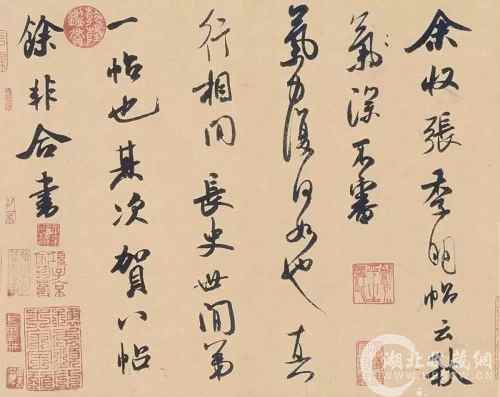 余收張季明帖云秋
氣深不審
氣力復何如也真
行相間長史世間第
一帖也其次賀八帖
餘非合書
湖北收藏网